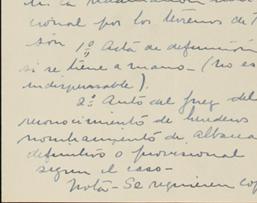 en la reclamación
cional por los terrenos de T
són 1º Acta de defunción
si se tiene a mano- (no es
indispensable).
2º- Auto del Juez del
reconocimiento de herederos
nombramiento de albacea
definitivo o provisional
según el caso-
Nota- Se requieren cop